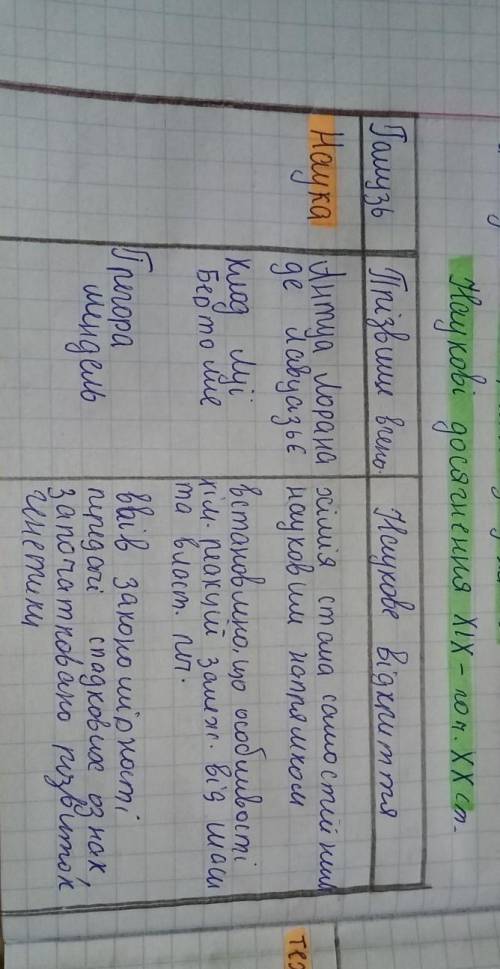 Наукові досягнення XIX - поч. XX ст.
Галузь
Прізвище вчено.
Наукове відкриття
Наука
Антуа Лорана
де Лавуазьє
хімія стала самостійним
науковим напрямком
Клод Луї
Бертолле
встановлено, що особливості
хім. реакцій залеж. від маси
та власт.
Грегора
Мендель
ввів закономірності
передачі спадкових ознак,
започатковано розвиток
генетики
тез